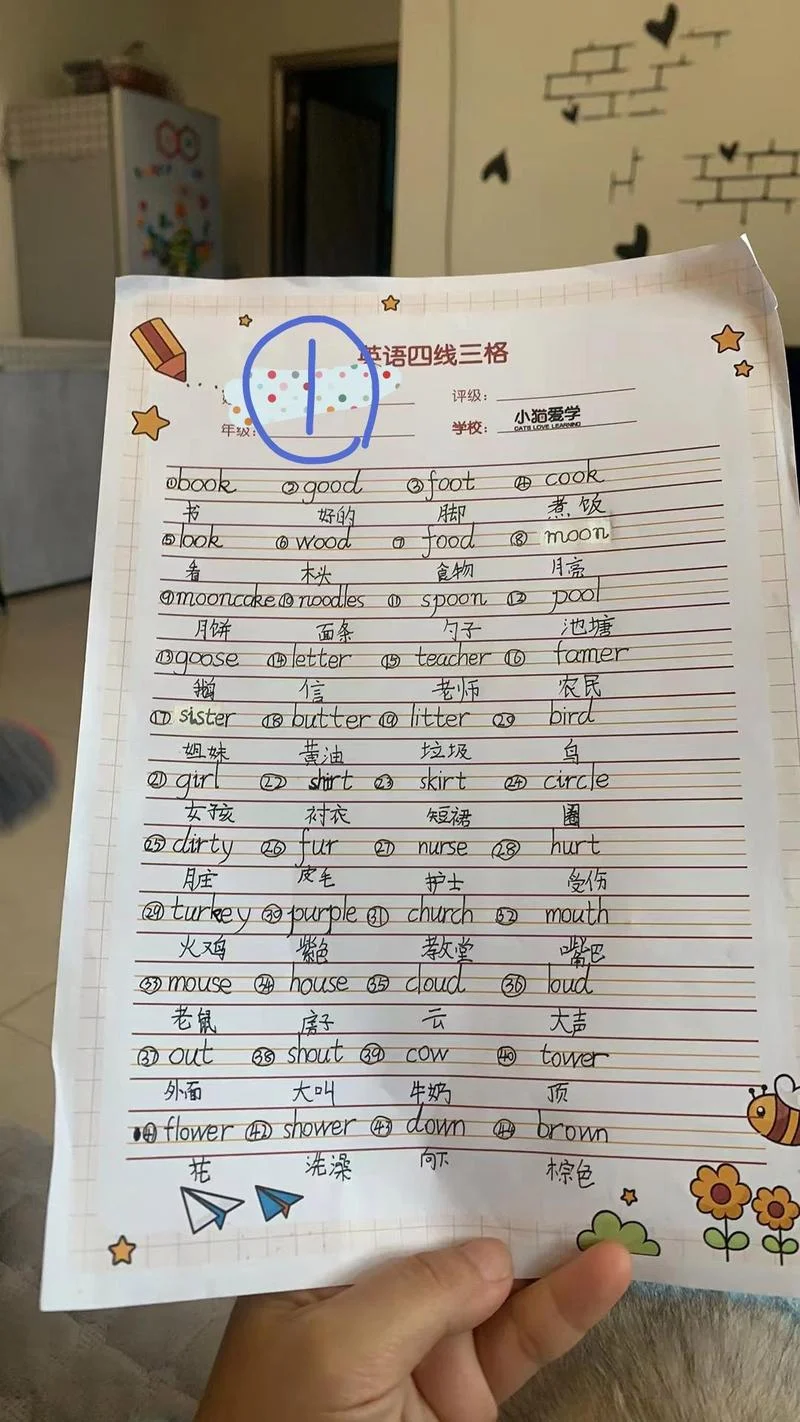 1
英语四线三格
评级：
年级： 学校： 小猫爱学
CATS LOVE LEARNING
①book ②good ③foot ④ cook
书 好的 脚 煮饭
⑤look ⑥wood ⑦ food ⑧ moon
看 木头 食物 月亮
⑨mooncake⑩noodles ⑪ spoon ⑫ pool
月饼 面条 勺子 池塘
⑬goose ⑭letter ⑮ teacher ⑯ famer
鹅 信 老师 农民
⑰ sister ⑱ butter ⑲ litter ⑳ bird
姐妹 黄油 垃圾 鸟
㉑ girl ㉒ shirt ㉓ skirt ㉔ circle
女孩 衬衣 短裙 圈
㉕dirty ㉖ fur ㉗ nurse ㉘ hurt
脏 皮毛 护士 受伤
㉙turkey ㉚purple ㉛ church ㉜ mouth
火鸡 紫色 教堂 嘴巴
㉝mouse ㉞ house ㉟ cloud ㊱ loud
老鼠 房子 云 大声
㊲ out ㊳ shout ㊴ cow ㊵ tower
外面 大叫 牛奶 顶
㊶ flower ㊷ shower ㊸ down ㊹ brown
花 洗澡 向下 棕色